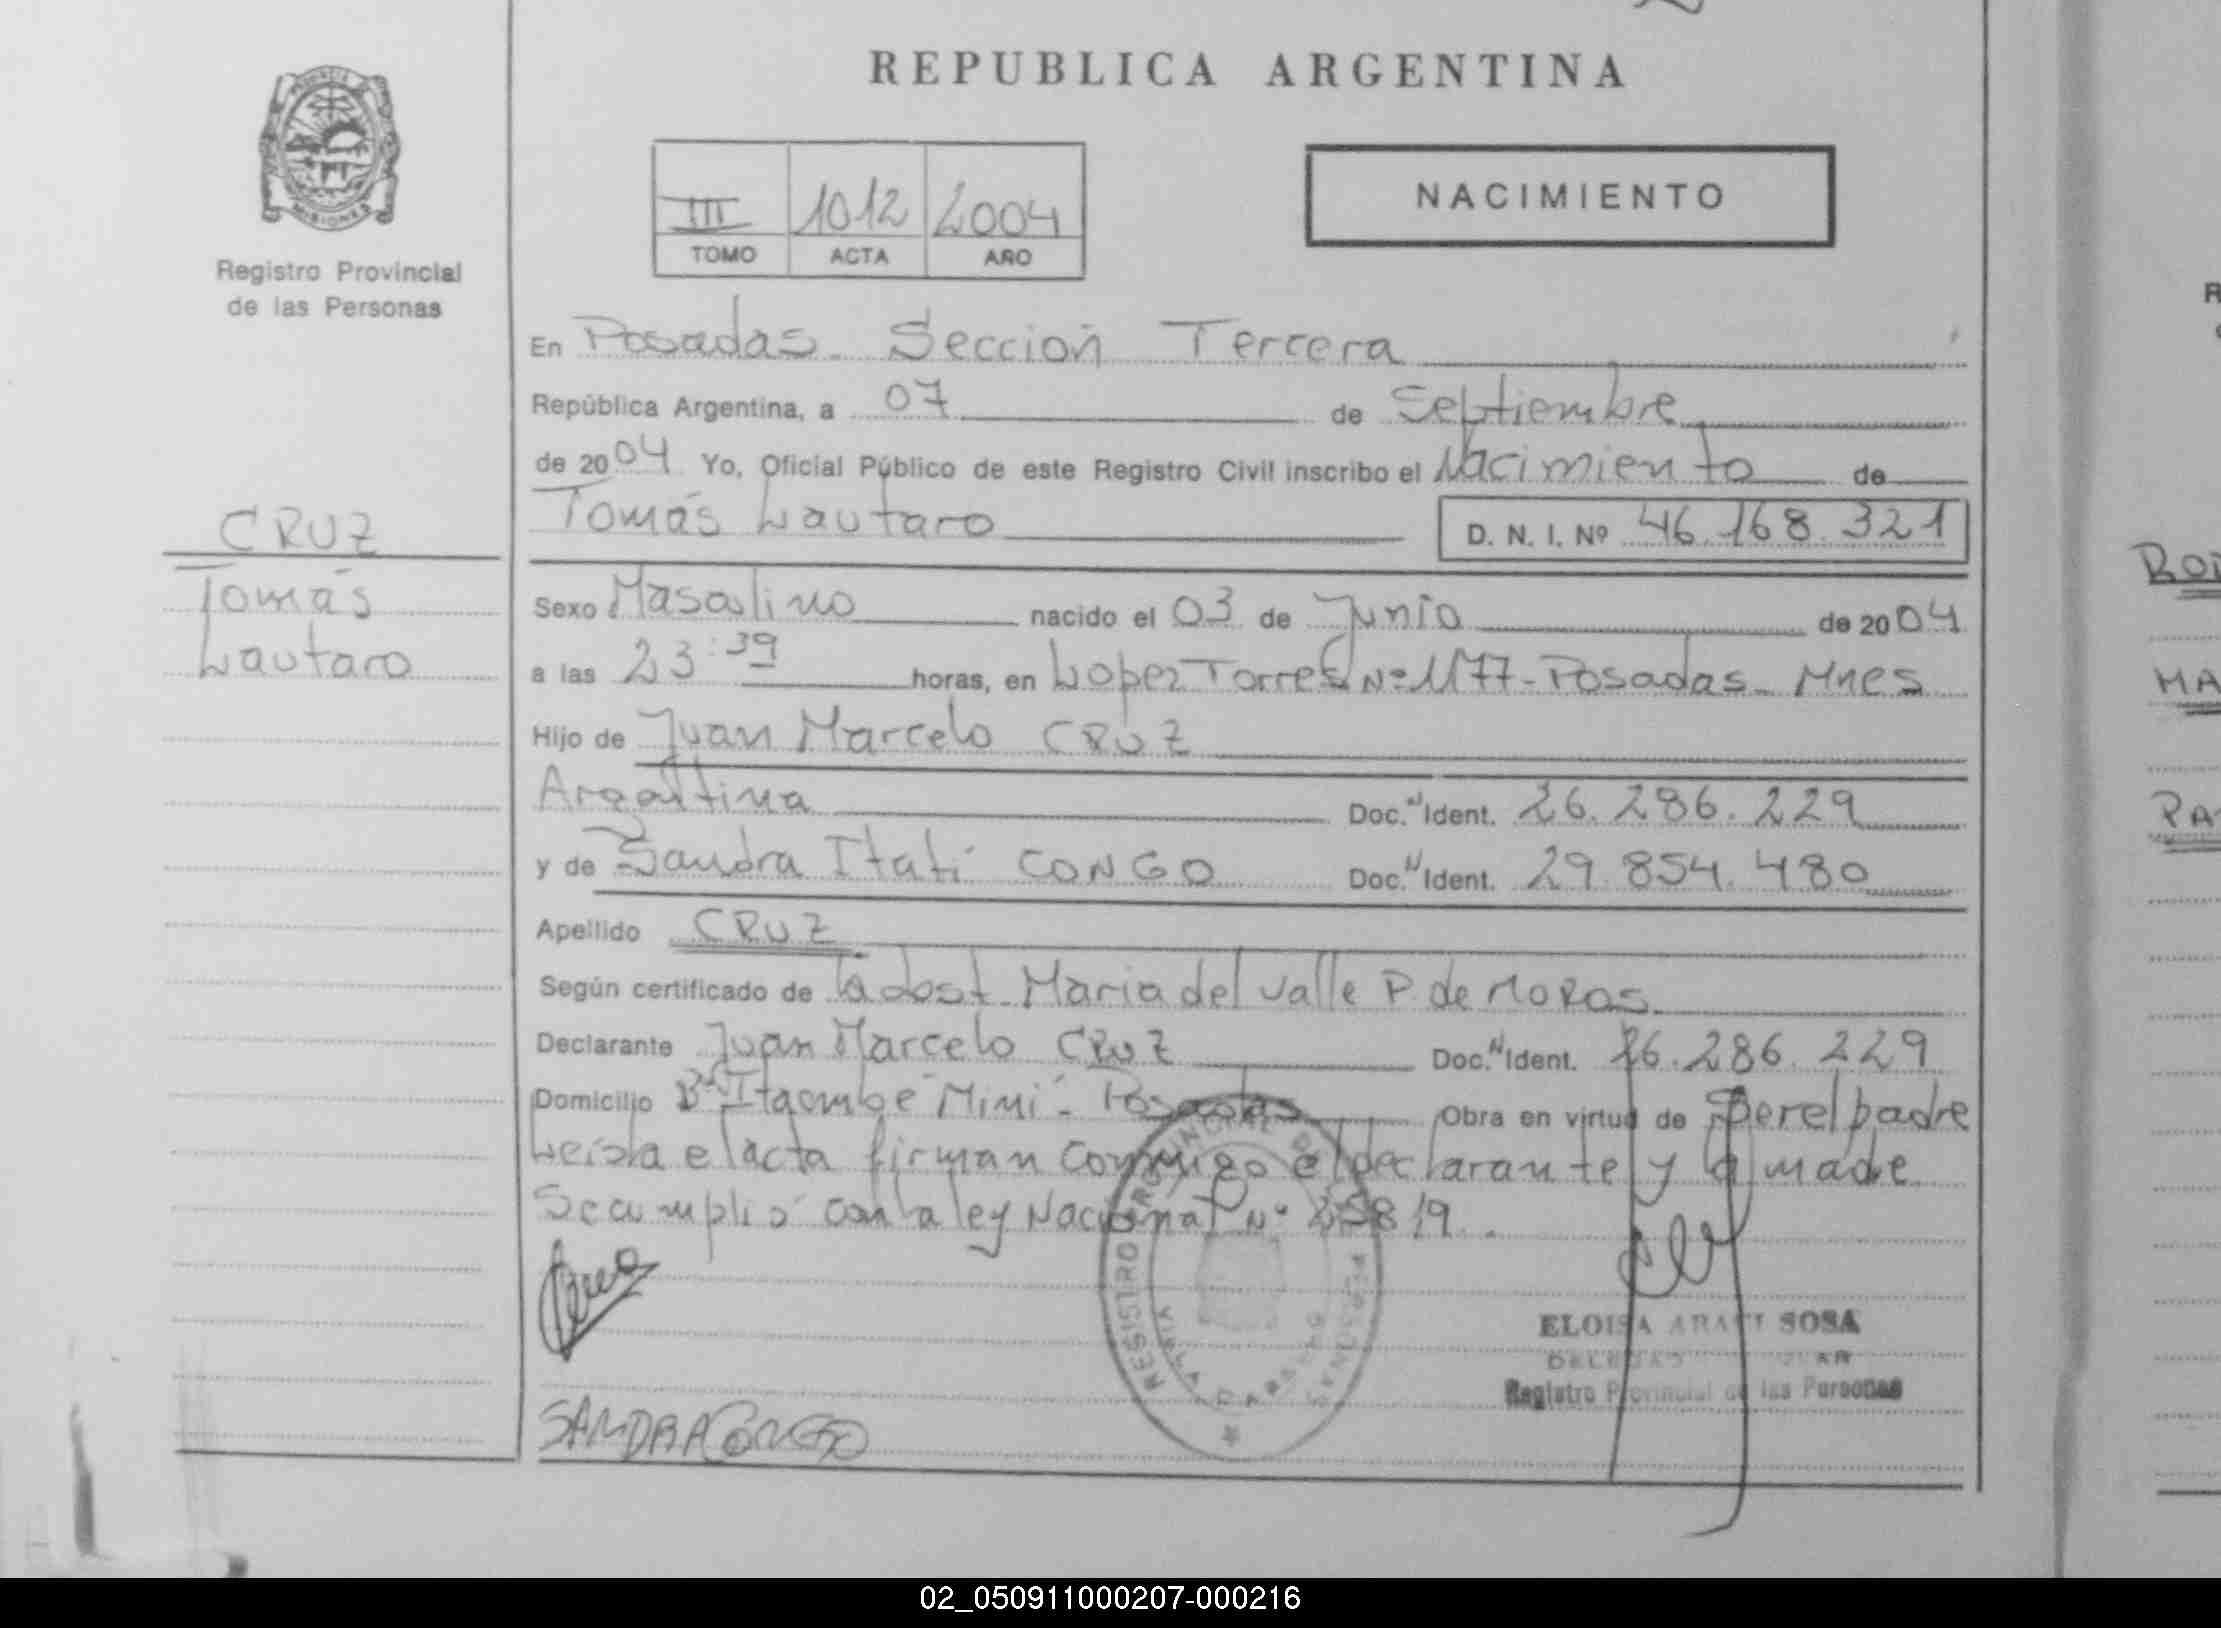 REPUBLICA ARGENTINA
PROVINCIA
MISIONES
Registro Provincial
de las Personas
III 1012 2004
TOMO ACTA AÑO
NACIMIENTO
En Posadas - Sección Tercera
República Argentina, a 07 de Septiembre
de 2004 Yo, Oficial Público de este Registro Civil inscribo el Nacimiento de
Tomás Lautaro D. N. I. Nº 46.168.321
CRUZ
Tomás
Lautaro
Sexo Masculino nacido el 03 de Junio de 2004
a las 23:39 horas, en Lopez Torres Nº 1177 - Posadas - Mnes
Hijo de Juan Marcelo CRUZ
Argentina Doc.N Ident. 26.286.229
y de Sandra Itatí CONGO Doc.N Ident. 29.854.480
Apellido CRUZ
Según certificado de la obst. Maria del Valle P. de MORAS
Declarante Juan Marcelo CRUZ Doc.N Ident. 26.286.229
Domicilio Bº Itaembé Mini - Posadas Obra en virtud de Ser el padre
Leída el acta firman conmigo el declarante y la madre
Se cumplió con la ley Nacional Nº 25819.
SANDRA CONGO
REGISTRO PROVINCIAL DE
PERSONAS
VILLA CABELLO
ELOISA ARACI SOSA
Registro Provincial de las Personas
02_050911000207-000216